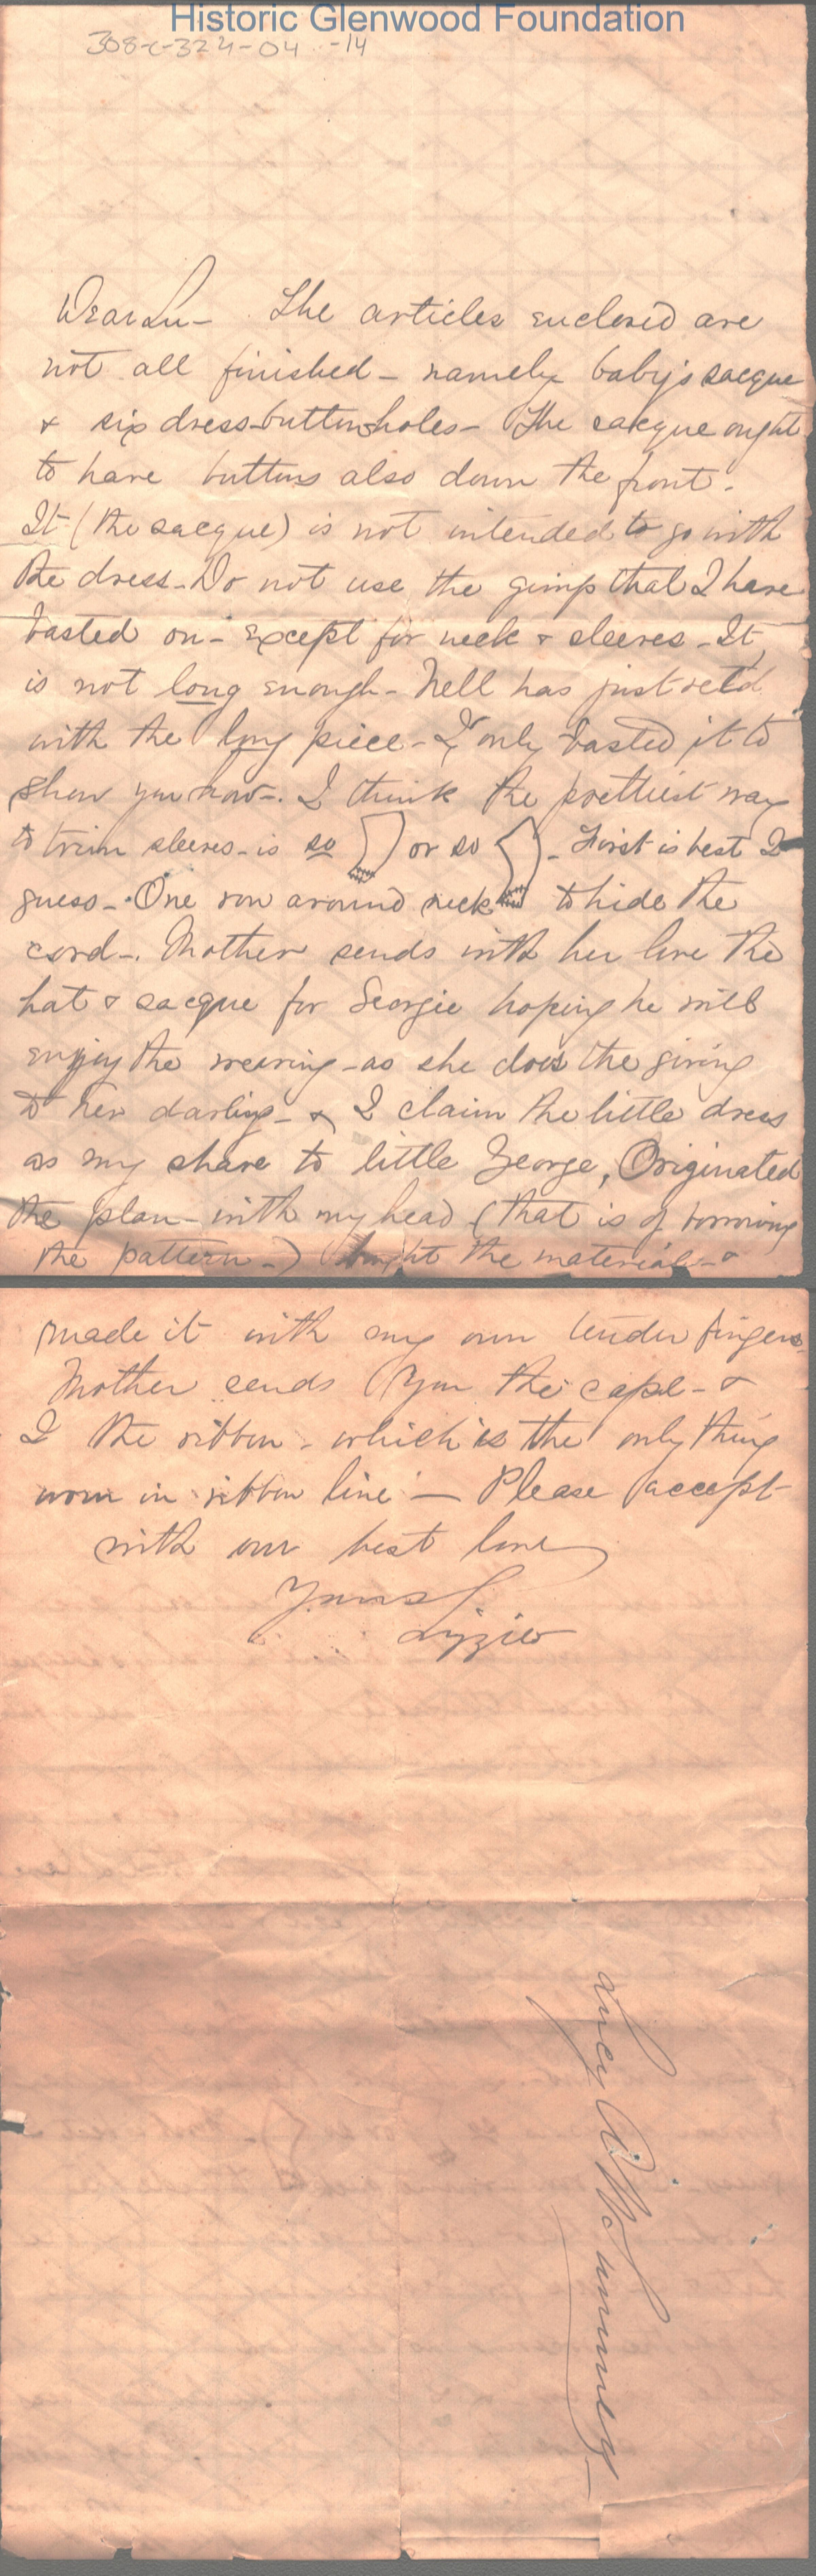 Historic Glenwood Foundation
308-c-324-04 -14
Dear Lu- The articles enclosed are
not all finished - namely baby's sacque
& six dress-buttonholes- The sacque ought
to have buttons also down the front.
It (the sacque) is not intended to go with
the dress - Do not use the gimp that I have
basted on - except for neck & sleeves - It
is not long enough - Nell has just retd
with the long piece - I only basted it to
show you how -. I think the prettiest way
to trim sleeves - is so or so - First is best I
guess -. One row around neck to hide the
cord -. Mother sends with her love the
hat & sacque for Georgie hoping he will
enjoy the wearing - as she does the giving
to her darling - & I claim the little dress
as my share to little George, Originated
the plan - with my head (that is of borrowing
the pattern -) bought the material - &
made it with my own tender fingers
Mother sends you the cape - &
I the ribbon - which is the only thing
worn in ribbon line — Please accept
with our best love
Yours
Lizzie
Lucy